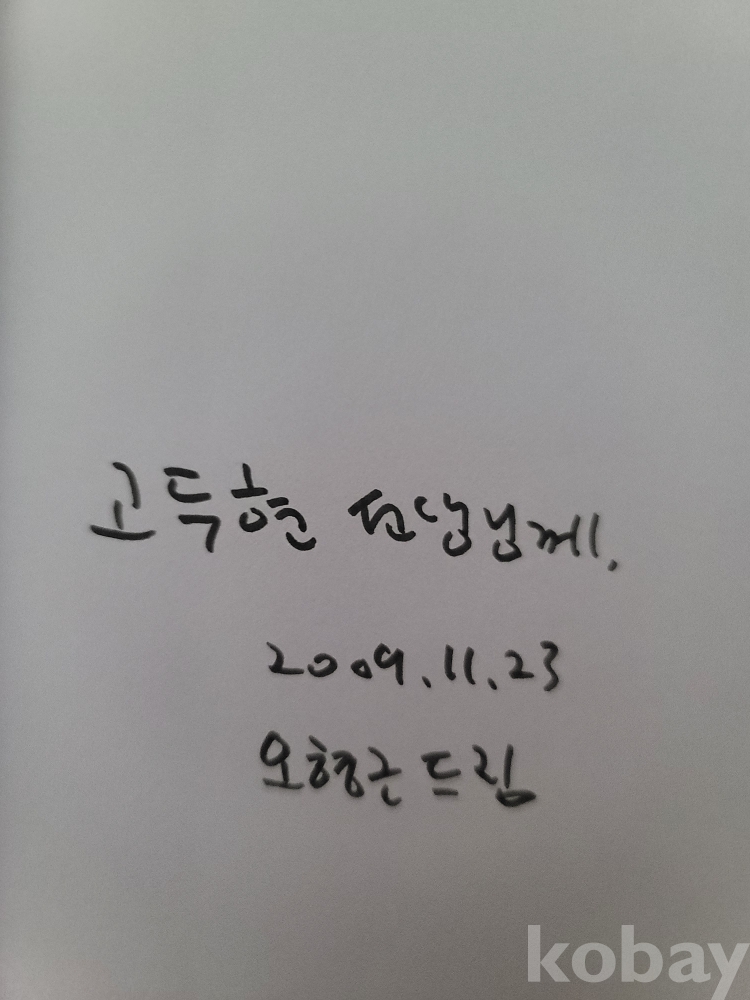 고두현 선생님께.
2009.11.23
오형근 드림
kobay